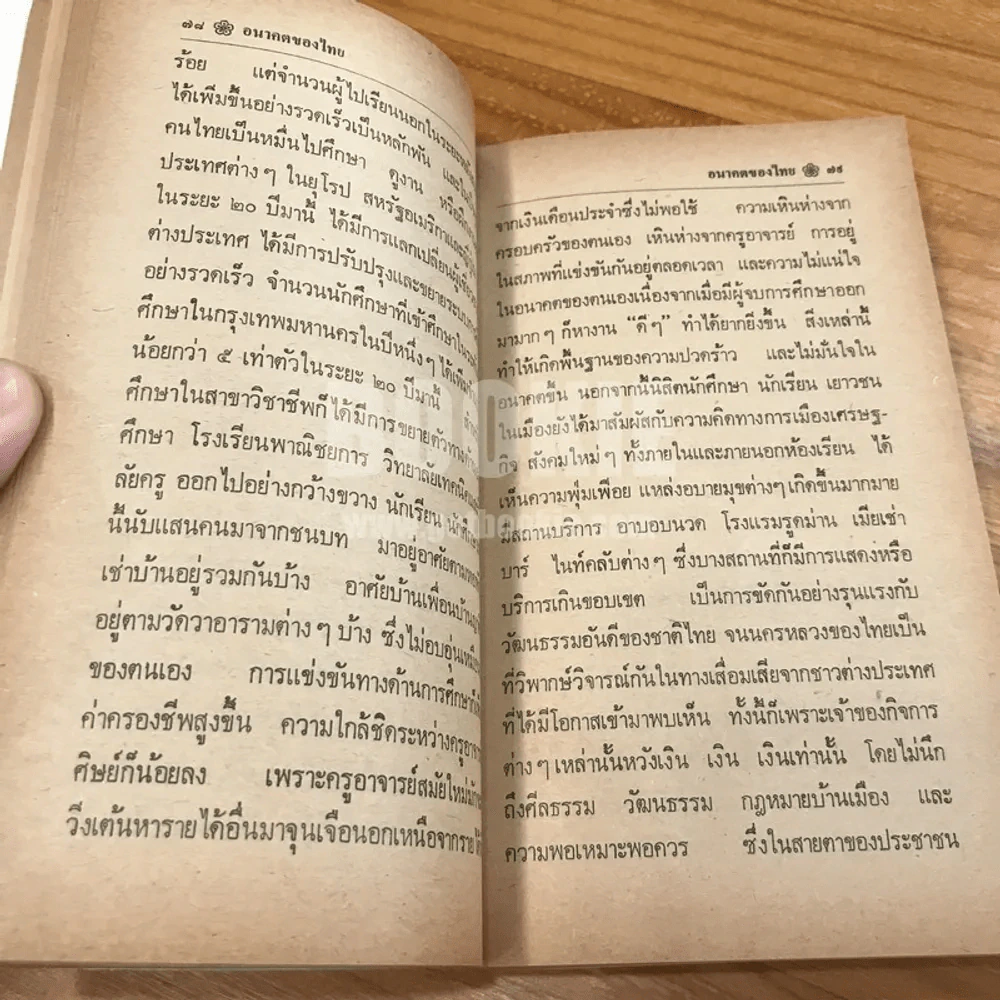 ๗๘ อนาคตของไทย
ร้อย แต่จำนวนผู้ไปเรียนนอกในระยะหลัง
ได้เพิ่มขึ้นอย่างรวดเร็วเป็นหลักพัน และใน
คนไทยเป็นหมื่นไปศึกษา ดูงาน หรือ
ประเทศต่างๆ ในยุโรป สหรัฐอเมริกาและญี่ปุ่น
ในระยะ ๒๐ ปีมานี้ ได้มีการแลกเปลี่ยนผู้เชี่ยวชาญ
ต่างประเทศ ได้มีการปรับปรุงและขยายระบบ
อย่างรวดเร็ว จำนวนนักศึกษาที่เข้าศึกษาใน
ศึกษาในกรุงเทพมหานครในปีหนึ่งๆ ได้เพิ่มขึ้น
น้อยกว่า ๕ เท่าตัวในระยะ ๒๐ ปีมานี้
ศึกษาในสาขาวิชาชีพก็ได้มีการขยายตัวทาง
ศึกษา โรงเรียนพาณิชยการ วิทยาลัยเทคนิค
ลัยครู ออกไปอย่างกว้างขวาง นักเรียน นักศึกษา
นี้นับแสนคนมาจากชนบท มาอยู่อาศัยตาม
เช่าบ้านอยู่รวมกันบ้าง อาศัยบ้านเพื่อนบ้าน
อยู่ตามวัดวาอารามต่างๆ บ้าง ซึ่งไม่อบอุ่นเหมือน
ของตนเอง การแข่งขันทางด้านการศึกษาก็
ค่าครองชีพสูงขึ้น ความใกล้ชิดระหว่างครูอาจารย์
ศิษย์ก็น้อยลง เพราะครูอาจารย์สมัยใหม่มัก
วิ่งเต้นหารายได้อื่นมาจุนเจือนอกเหนือจากรายได้
อนาคตของไทย ๗๙
จากเงินเดือนประจำซึ่งไม่พอใช้ ความเหินห่างจาก
ครอบครัวของตนเอง เหินห่างจากครูอาจารย์ การอยู่
ในสภาพที่แข่งขันกันอยู่ตลอดเวลา และความไม่แน่ใจ
ในอนาคตของตนเองเนื่องจากเมื่อมีผู้จบการศึกษาออก
มามากๆ ก็หางาน “ดีๆ” ทำได้ยากยิ่งขึ้น สิ่งเหล่านี้
ทำให้เกิดพื้นฐานของความปวดร้าว และไม่มั่นใจใน
อนาคตขึ้น นอกจากนี้นิสิตนักศึกษา นักเรียน เยาวชน
ในเมืองยังได้มาสัมผัสกับความคิดทางการเมืองเศรษฐ-
กิจ สังคมใหม่ๆ ทั้งภายในและภายนอกห้องเรียน ได้
เห็นความฟุ่มเฟือย แหล่งอบายมุขต่างๆเกิดขึ้นมากมาย
มีสถานบริการ อาบอบนวด โรงแรมรูดม่าน เมียเช่า
บาร์ ไนท์คลับต่างๆ ซึ่งบางสถานที่ก็มีการแสดงหรือ
บริการเกินขอบเขต เป็นการขัดกันอย่างรุนแรงกับ
วัฒนธรรมอันดีของชาติไทย จนนครหลวงของไทยเป็น
ที่วิพากษ์วิจารณ์กันในทางเสื่อมเสียจากชาวต่างประเทศ
ที่ได้มีโอกาสเข้ามาพบเห็น ทั้งนี้ก็เพราะเจ้าของกิจการ
ต่างๆเหล่านั้นหวังเงิน เงิน เงินเท่านั้น โดยไม่นึก
ถึงศีลธรรม วัฒนธรรม กฎหมายบ้านเมือง และ
ความพอเหมาะพอควร ซึ่งในสายตาของประชาชน